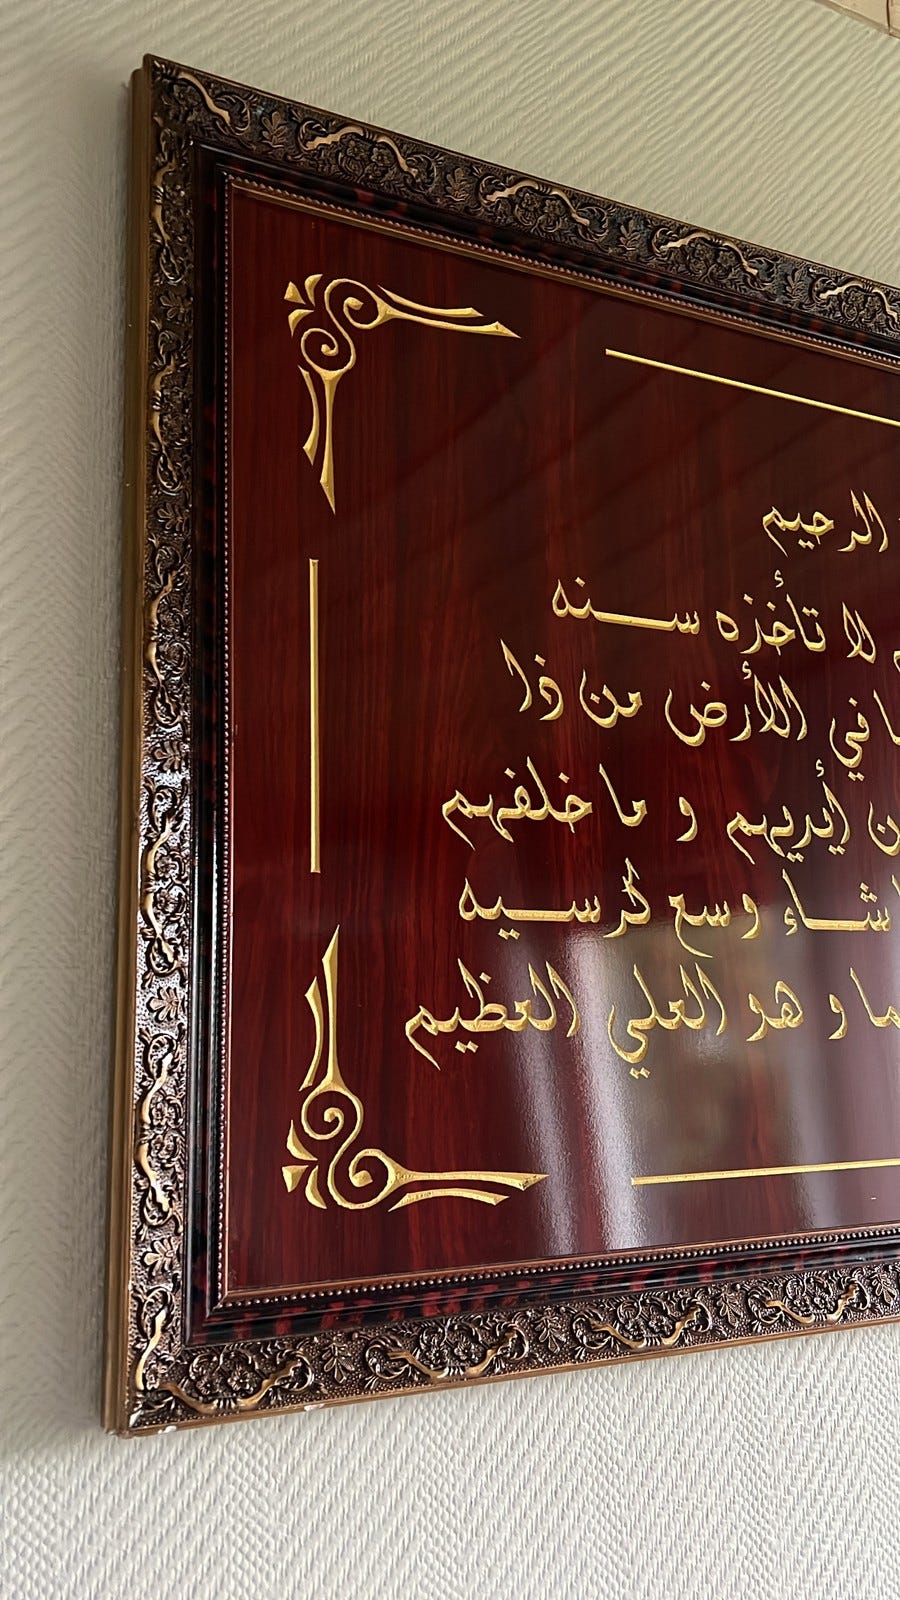 الرحيم
لا تأخذه سنه
في الأرض من ذا
أيديهم و ما خلفهم
شاء وسع كرسيه
ما و هو العلي العظيم